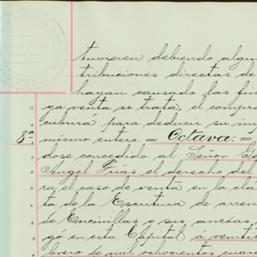 tuvieren debiendo algu
tribuciones directas de
hayan causado las fin
ya venta se trata, el compra
cubrirá para deducir su im
mismo entero. = Octava. =
8ª
dose concedido al Señor
Angel Trias el derecho del
ra, el caso de venta en la clá
ta de la Escritura de arren
de Encinillas y sus anexas
gó en esta Capital a veinti
brero de mil ochocientos cuare